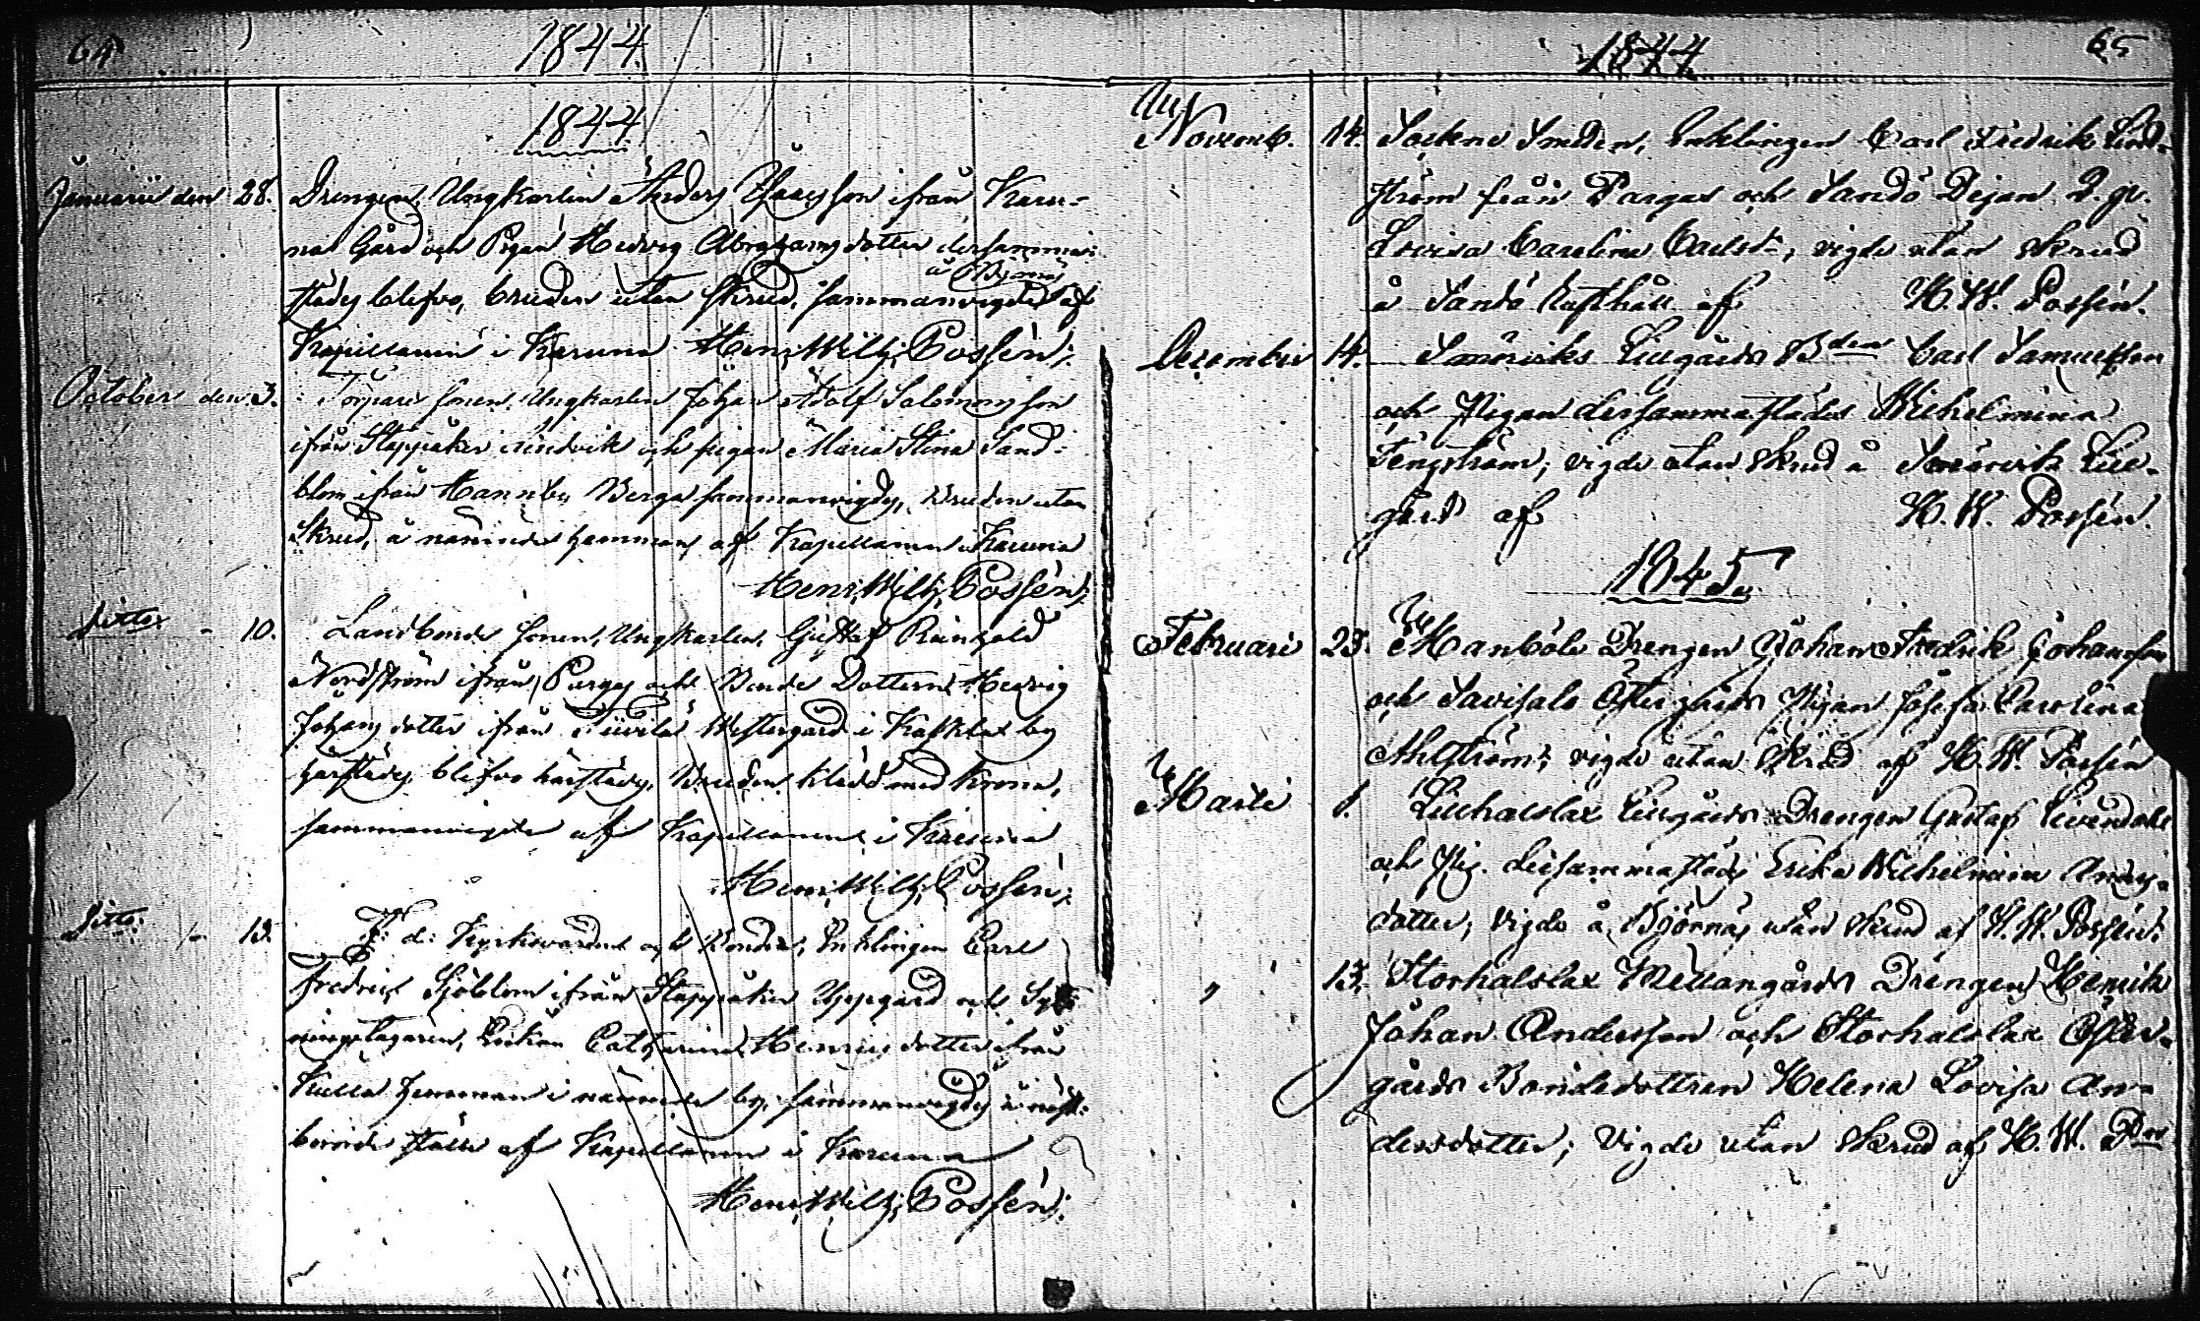 64
1844
1844
Januarii den 28. Drengen, Ungkarlen Anders Isaacsson ifrån Karu-
na Gård och Pigan Hedvig Abrahams dotter dersamma-
å Björnäs
städes blefvo, bruden utan skrud, sammanvigde af
Kapellanen i Karuna Henr. Wilh. Possén.
October den 3. Torpare sonen, Ungkarlen Johan Adolf Salomonsson
ifrån Stappåker och pigan Maria Stina Sand-
blom ifrån Berga sammanvigdes, Bruden utan
Skrud, å nämnde hemman af Kapellanen i Karuna
Henr. Wilh. Possén.
ditto - 10. Landbonde sonen, Ungkarlen, Gustaf Reinhold
Nordström ifrån Pargas och Bonde Dottern Hedvig
Johans dotter ifrån Westergård i by
härstädes blefvo härstädes, Bruden klädd med krona,
sammanvigde af Kapellanen i Karuna
Henr. Wilh. Possén.
ditto - 13. F. d. Kyrkovärden och Bonden, Enklingen Carl
Fredric Sjöblom ifrån Stappåker Uppgård och Syt-
ningstagaren, Enkan Catharina Henrics dotter ifrån
Kulla hemman i nämnde by, sammanvigdes å
Kapellanen i Karuna
Henr. Wilh. Possén.
1844
65
Novemb. 14. Sockne Smeden, Enklingen Carl Fredrik Lind-
ström från Pargas och Sandö Pejan
Lovisa Carolina Carlsd., vigde utan skrud
å Sandö Rusthåll af H. W. Possén.
December 14. Lillgårds Bden Carl Samuelsson
och Pigan dersammastädes Wilhelmina
Fengström; vigde utan skrud å Lill-
gård af H. W. Possén.
1845.
Februari 23. Manböle Drengen Johan Fredrik Johansson
och Östergårds Pigan Josefa Carolina
Ahlström; vigde utan skrud af H. W. Possén
Martii 1. Lillhalslax Lillgårds Drengen Gustaf
och Pig. dersammastädes Erika Wilhelmina Anders-
dotter; vigde å Björnäs utan skrud af H. W. Possén.
" 13. Storhalslax Mellangårds Drengen Henrik
Johan Andersson och Storhalslax Öster-
gårds Bondedottren Helena Lovisa An-
dersdotter; vigde utan skrud af H. W. Psn